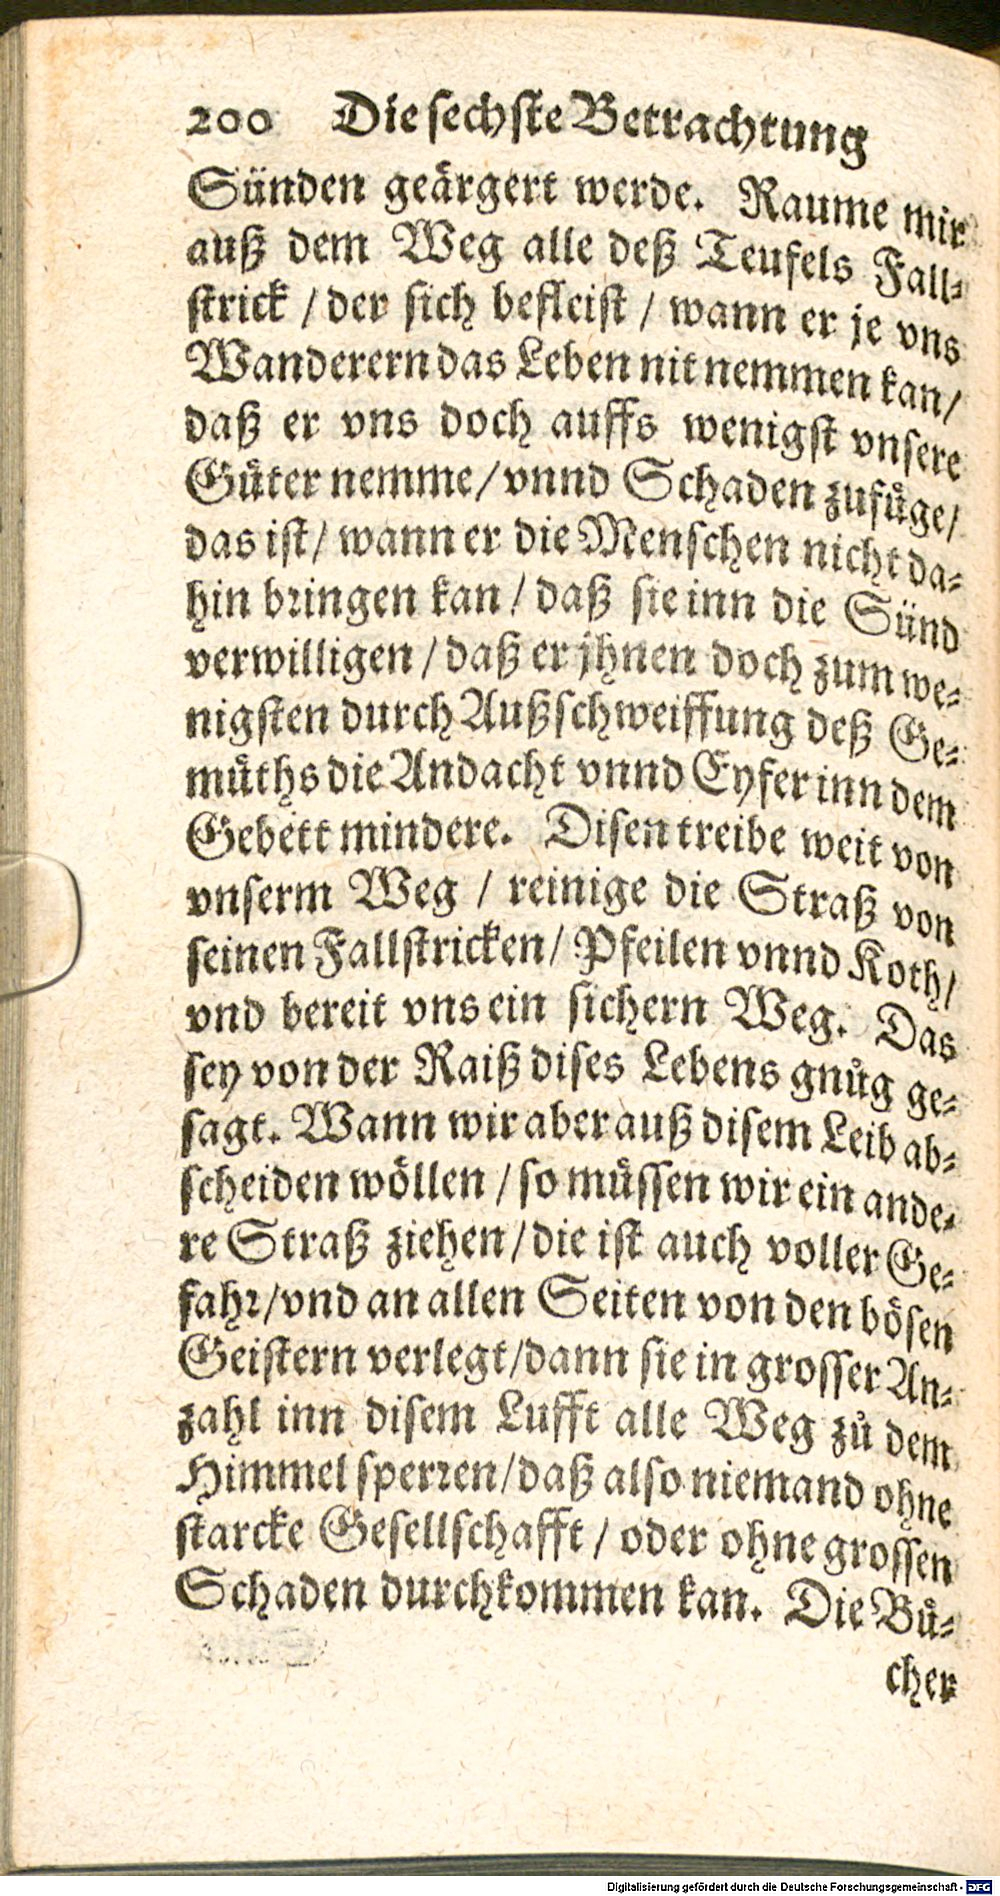 200 Die sechste Betrachtung
Sünden geärgert werde. Raume mir
auß dem Weg alle deß Teufels Fall-
strick / der sich befleist / wann er je vns
Wanderern das Leben nit nemmen kan/
daß er vns doch auffs wenigst vnsere
Güter nemme/vnnd Schaden zufüge/
das ist/ wann er die Menschen nicht da-
hin bringen kan / daß sie inn die Sünd
verwilligen / daß er jhnen doch zum we-
nigsten durch Außschweiffung deß Ge-
müths die Andacht vnnd Eyfer inn dem
Gebett mindere. Disen treibe weit von
vnserm Weg / reinige die Straß von
seinen Fallstricken/ Pfeilen vnnd Koth/
vnd bereit vns ein sichern Weg. Das
sey von der Raiß dises Lebens gnůg ge-
sagt. Wann wir aber auß disem Leib ab-
scheiden wöllen / so müssen wir ein ande-
re Straß ziehen/die ist auch voller Ge-
fahr/vnd an allen Seiten von den bösen
Geistern verlegt/dann sie in grosser An-
zahl inn disem Lufft alle Weg zů dem
Himmel sperren/daß also niemand ohne
starcke Gesellschafft / oder ohne grossen
Schaden durchkommen kan. Die Bü-
cher
Digitalisierung gefördert durch die Deutsche Forschungsgemeinschaft - DFG